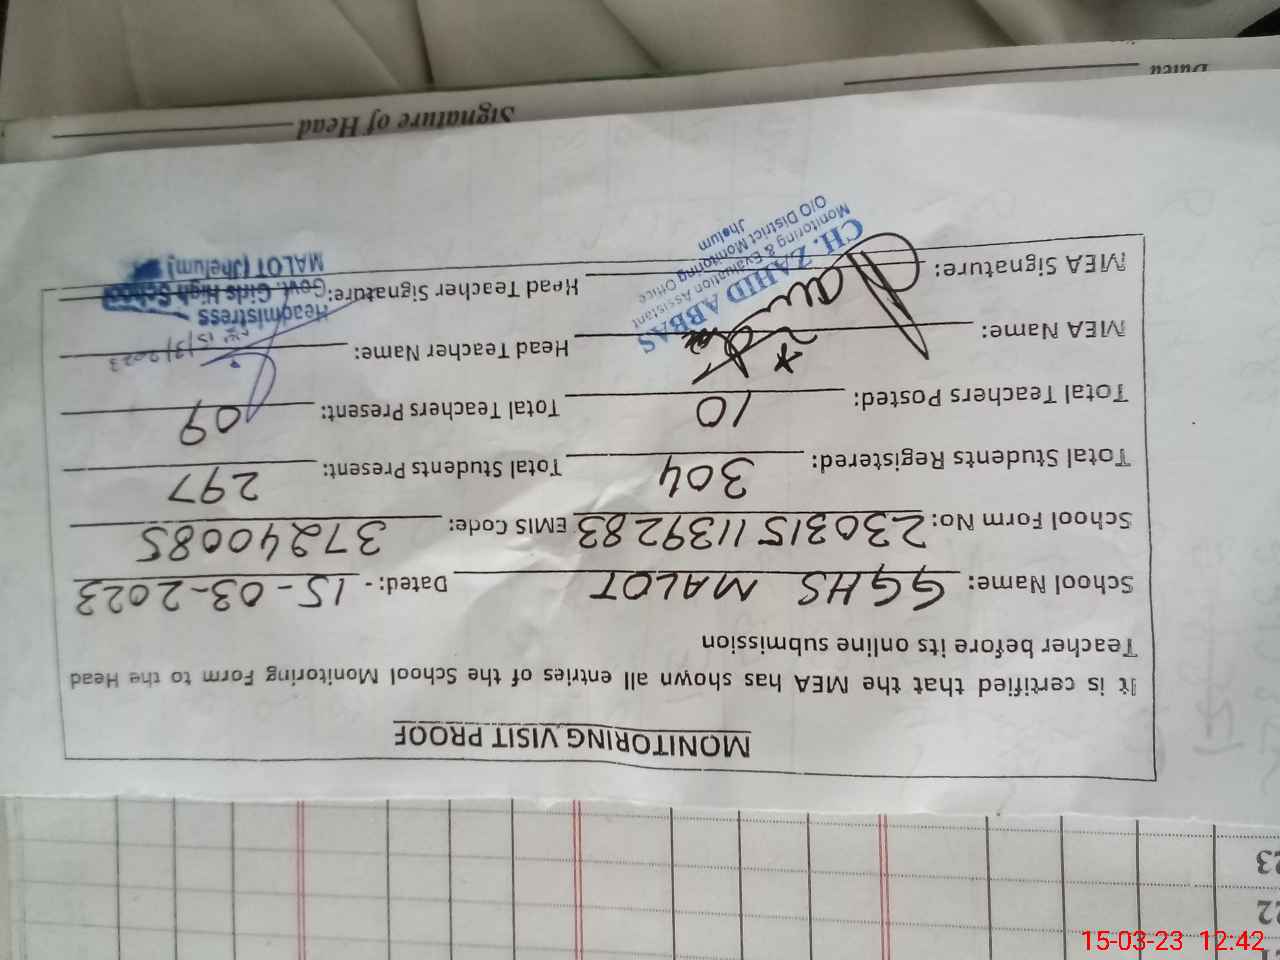 MONITORING VISIT PROOF
It is certified that the MEA has shown all entries of the School Monitoring Form to the Head
Teacher before its online submission
School Name: GGHS MALOT Dated: - 15-03-2023
School Form No: 2303151139283 EMIS Code: 37240085
Total Students Registered: 304 Total Students Present: 297
Total Teachers Posted: 10 Total Teachers Present: 09
MEA Name: Head Teacher Name: 15/3/2023
MEA Signature: Head Teacher Signature:
CH. ZAHID ABBAS
Monitoring & Evaluation Assistant
O/O District Monitoring Office
Jhelum
Headmistress
Govt. Girls High School
MALOT (Jhelum)
Signature of Head
Dated
22
23
15-03-23 12:42